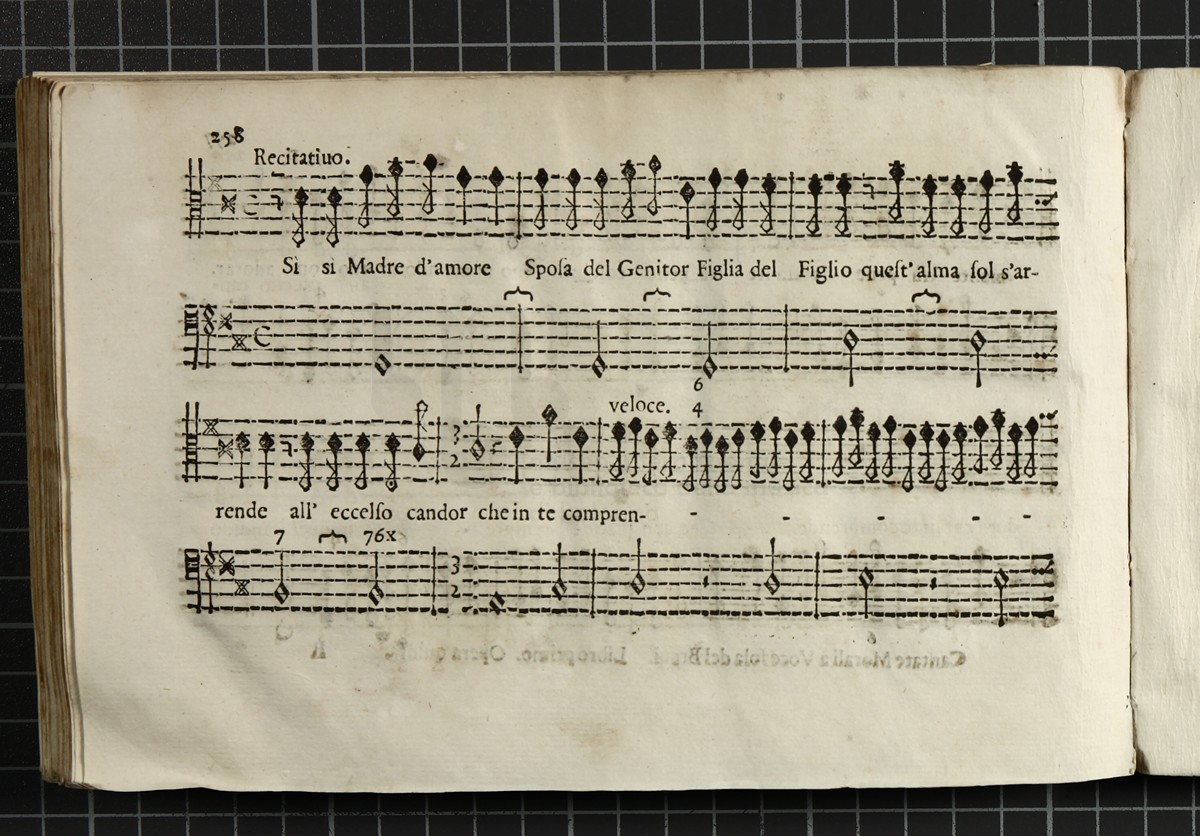 258
Recitatiuo.
Sì si Madre d'amore Spoſa del Genitor Figlia del Figlio queſt'alma ſol s'ar-
6
veloce. 4
rende all' eccelſo candor che in te compren- - - - - -
7 76x